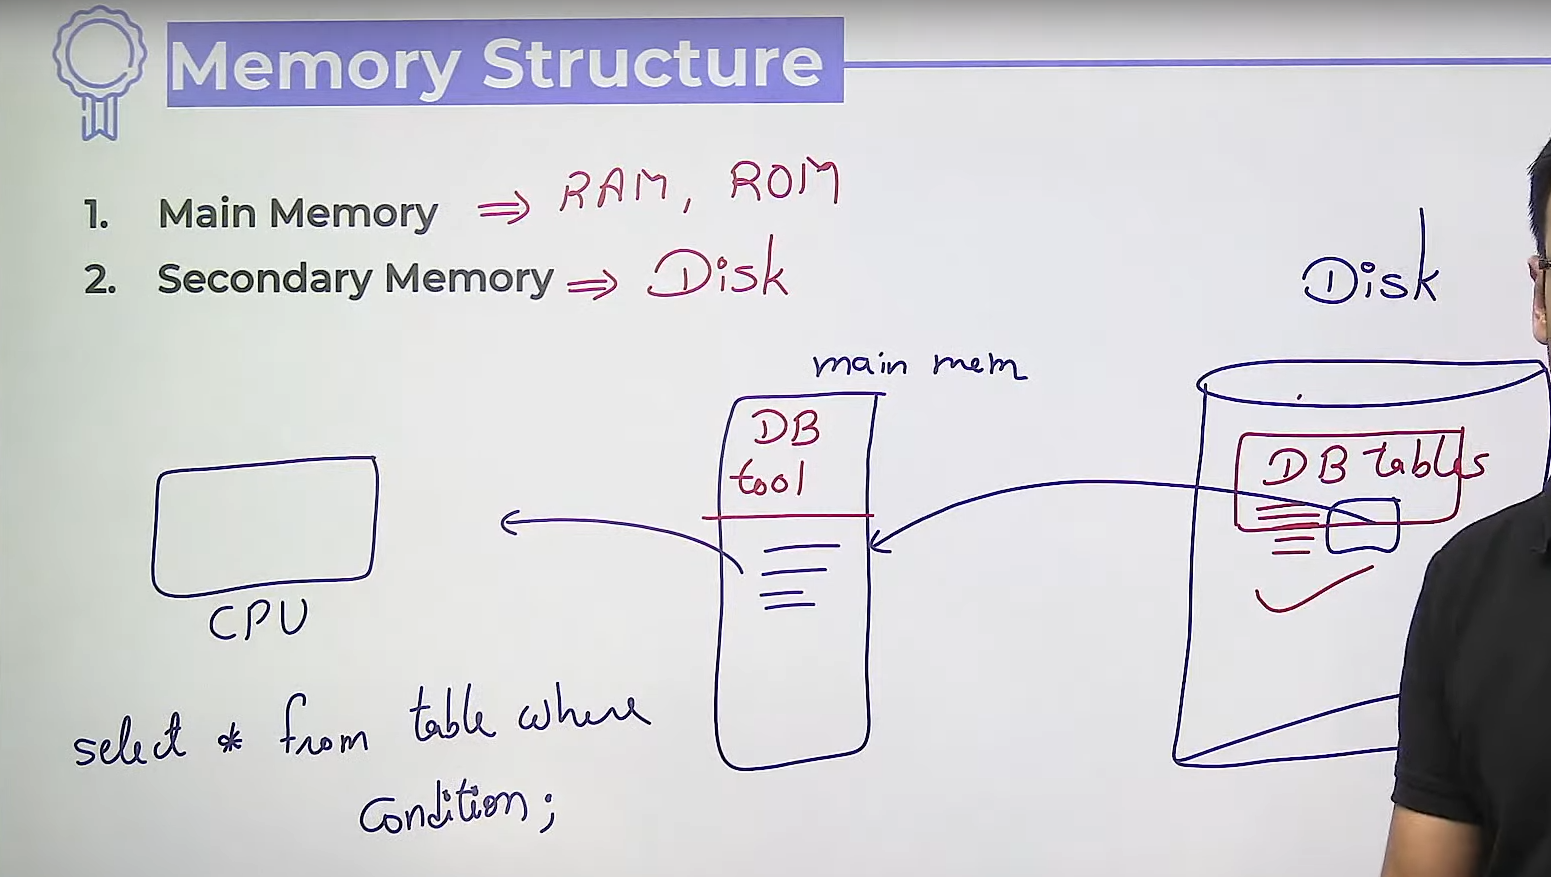 Memory Structure
1. Main Memory ⇒ RAM, ROM
2. Secondary Memory ⇒ Disk
Disk
main mem
DB
tool
DB tables
CPU
select * from table where
Condition;